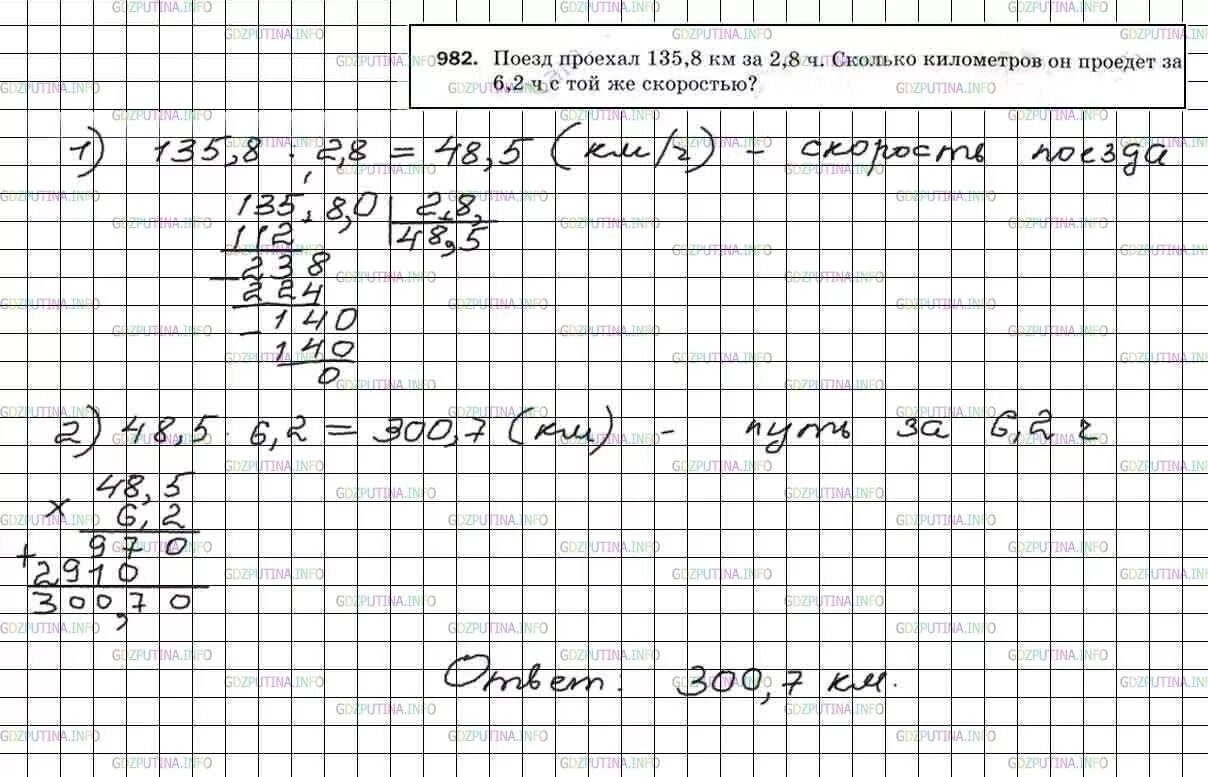 982. Поезд проехал 135,8 км за 2,8 ч. Сколько километров он проедет за
6,2 ч с той же скоростью?
1) 135,8 : 2,8 = 48,5 (км/ч) - скорость поезда
135,8,0 | 2,8,
112 48,5
- 238
224
- 140
140
0
2) 48,5 · 6,2 = 300,7 (км) - путь за 6,2 ч
48,5
× 6,2
970
+ 2910
300,70
Ответ: 300,7 км.
GDZPUTINA.INFO